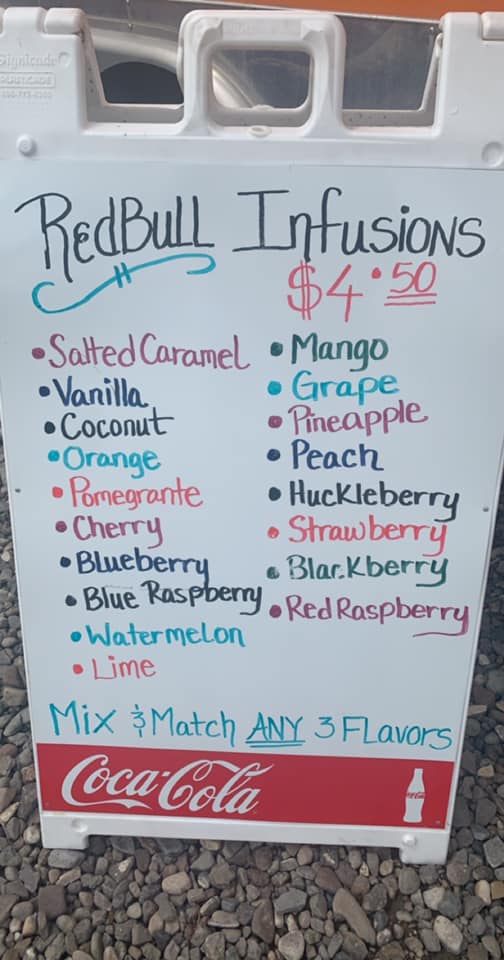 Signicade
PLASTICADE
RedBull Infusions
$4.50
• Salted Caramel
• Vanilla
• Coconut
• Orange
• Pomegrante
• Cherry
• Blueberry
• Blue Raspberry
• Watermelon
• Lime
• Mango
• Grape
• Pineapple
• Peach
• Huckleberry
• Strawberry
• Blackberry
• Red Raspberry
Mix & Match ANY 3 Flavors
Coca-Cola